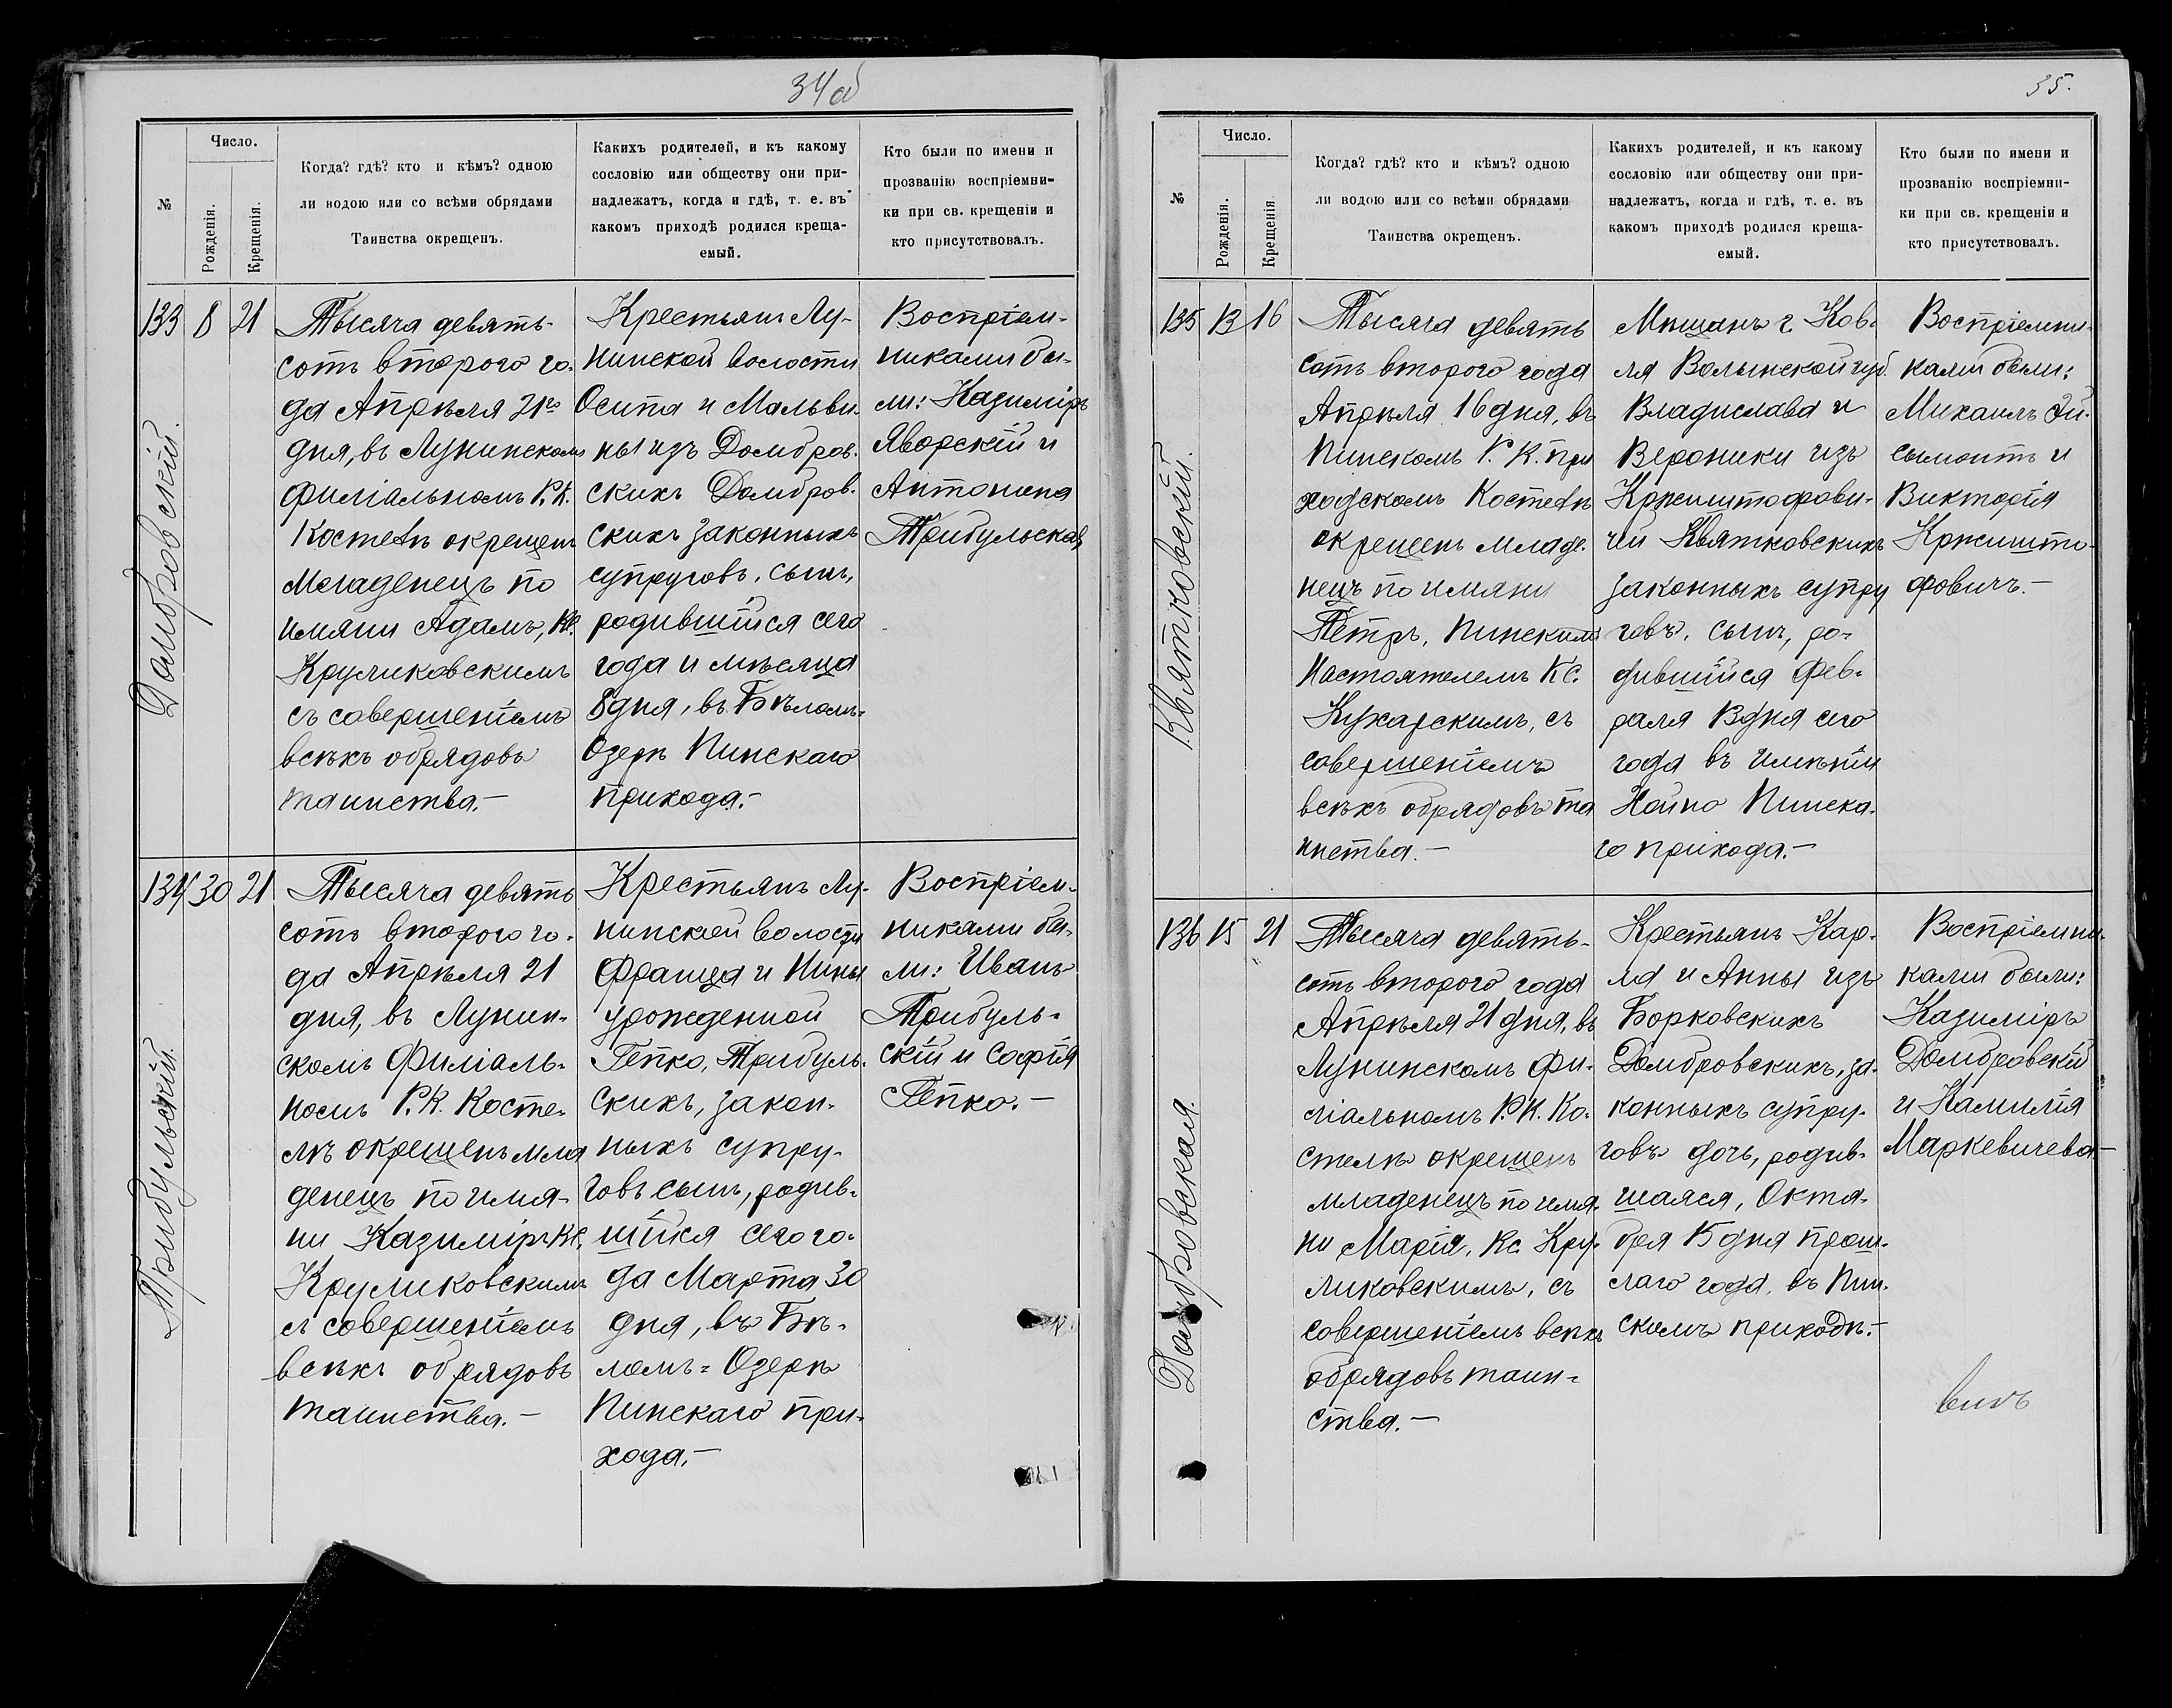 34об
№
Число.
Рожденія.
Крещенія.
Когда? гдѣ? кто и кѣмъ? одною
ли водою или со всѣми обрядами
Таинства окрещенъ.
Какихъ родителей, и къ какому
сословію или обществу они при-
надлежатъ, когда и гдѣ, т. е. въ
какомъ приходѣ родился креща-
емый.
Кто были по имени и
прозванію воспріемни-
ки при св. крещеніи и
кто присутствовалъ.
133 8 21
Домбровскій.
Тысяча девять-
сотъ второго го-
да Апрѣля 21го
дня, въ Лунинскомъ
филіальномъ Р. К.
Костелѣ окрещенъ
Младенецъ по
имяни Адамъ, Кс.
Круликовскимъ
съ совершеніемъ
всѣхъ обрядовъ
таинства.—
Крестьянъ Лу-
нинской волости
Осипа и Мальви-
ны изъ Домбров-
скихъ Домбров-
скихъ законныхъ
супруговъ, сынъ,
родившійся сего
года и мѣсяца
8 дня, въ Бѣломъ-
Озерѣ Пинскаго
прихода.—
Воспріем-
никами бы-
ли: Казиміръ
Яворскій и
Антонина
Трибульская
134 30 21
Трибульскій.
Тысяча девять
сотъ второго го-
да Апрѣля 21
дня, въ Лунин-
скомъ филіаль-
номъ Р. К. Косте-
лѣ окрещенъ мла
денецъ по имя-
ни Казиміръ Кс.
Круликовскимъ
съ совершеніемъ
всѣхъ обрядовъ
таинства.—
Крестьянъ Лу-
нинской волости
Франца и Нины
урожденной
Гепко, Трибуль-
скихъ, закон-
ныхъ супру-
говъ сынъ, родив-
шійся сего го-
да Марта 30
дня, въ Бѣ-
ломъ-Озерѣ
Пинскаго при-
хода.—
Воспріем-
никами бы-
ли: Иванъ
Трибуль-
скій и Софія
Гепко.—
35.
№
Число.
Рожденія.
Крещенія.
Когда? гдѣ? кто и кѣмъ? одною
ли водою или со всѣми обрядами
Таинства окрещенъ.
Какихъ родителей, и къ какому
сословію или обществу они при-
надлежатъ, когда и гдѣ, т. е. въ
какомъ приходѣ родился креща-
емый.
Кто были по имени и
прозванію воспріемни-
ки при св. крещеніи и
кто присутствовалъ.
135 13 16
Квятковскій.
Тысяча девять
сотъ второго года
Апрѣля 16 дня, въ
Пинскомъ Р. К. при
ходскомъ Костелѣ
окрещенъ младе-
нецъ по имяни
Петръ, Пинскимъ
Настоятелемъ Кс.
Кухарскимъ, съ
совершеніемъ
всѣхъ обрядовъ та
инства.—
Мѣщанъ г. Ков-
ля Волынской губ.
Владислава и
Вероники изъ
Кржиштофови-
чей Квятковскихъ
законныхъ супру
говъ, сынъ, ро-
дившійся Фев-
раля 13 дня сего
года въ имѣніи
Пинска-
го прихода.—
Воспріемни-
ками были:
Михаилъ Эй-
сымонтъ и
Викторія
Кржишто-
фовичъ.—
136 15 21
Домбровская.
Тысяча девять-
сотъ второго года
Апрѣля 21 дня, въ
Лунинскомъ фи-
ліальномъ Р. К. Ко-
стелѣ окрещенъ
младенецъ по имя-
ни Марія, Кс. Кру-
ликовскимъ, съ
совершеніемъ всѣхъ
обрядовъ таин-
ства.—
Крестьянъ Кар-
ла и Анны изъ
Борковскихъ
Домбровскихъ, за-
конныхъ супру-
говъ дочь, родив-
шаяся, Октя-
бря 15 дня прош-
лаго года, въ Пин-
скомъ приходѣ.—
Воспріемни-
ками были:
Казиміръ
Домбровскій
и Камилія
Маркевичева.—